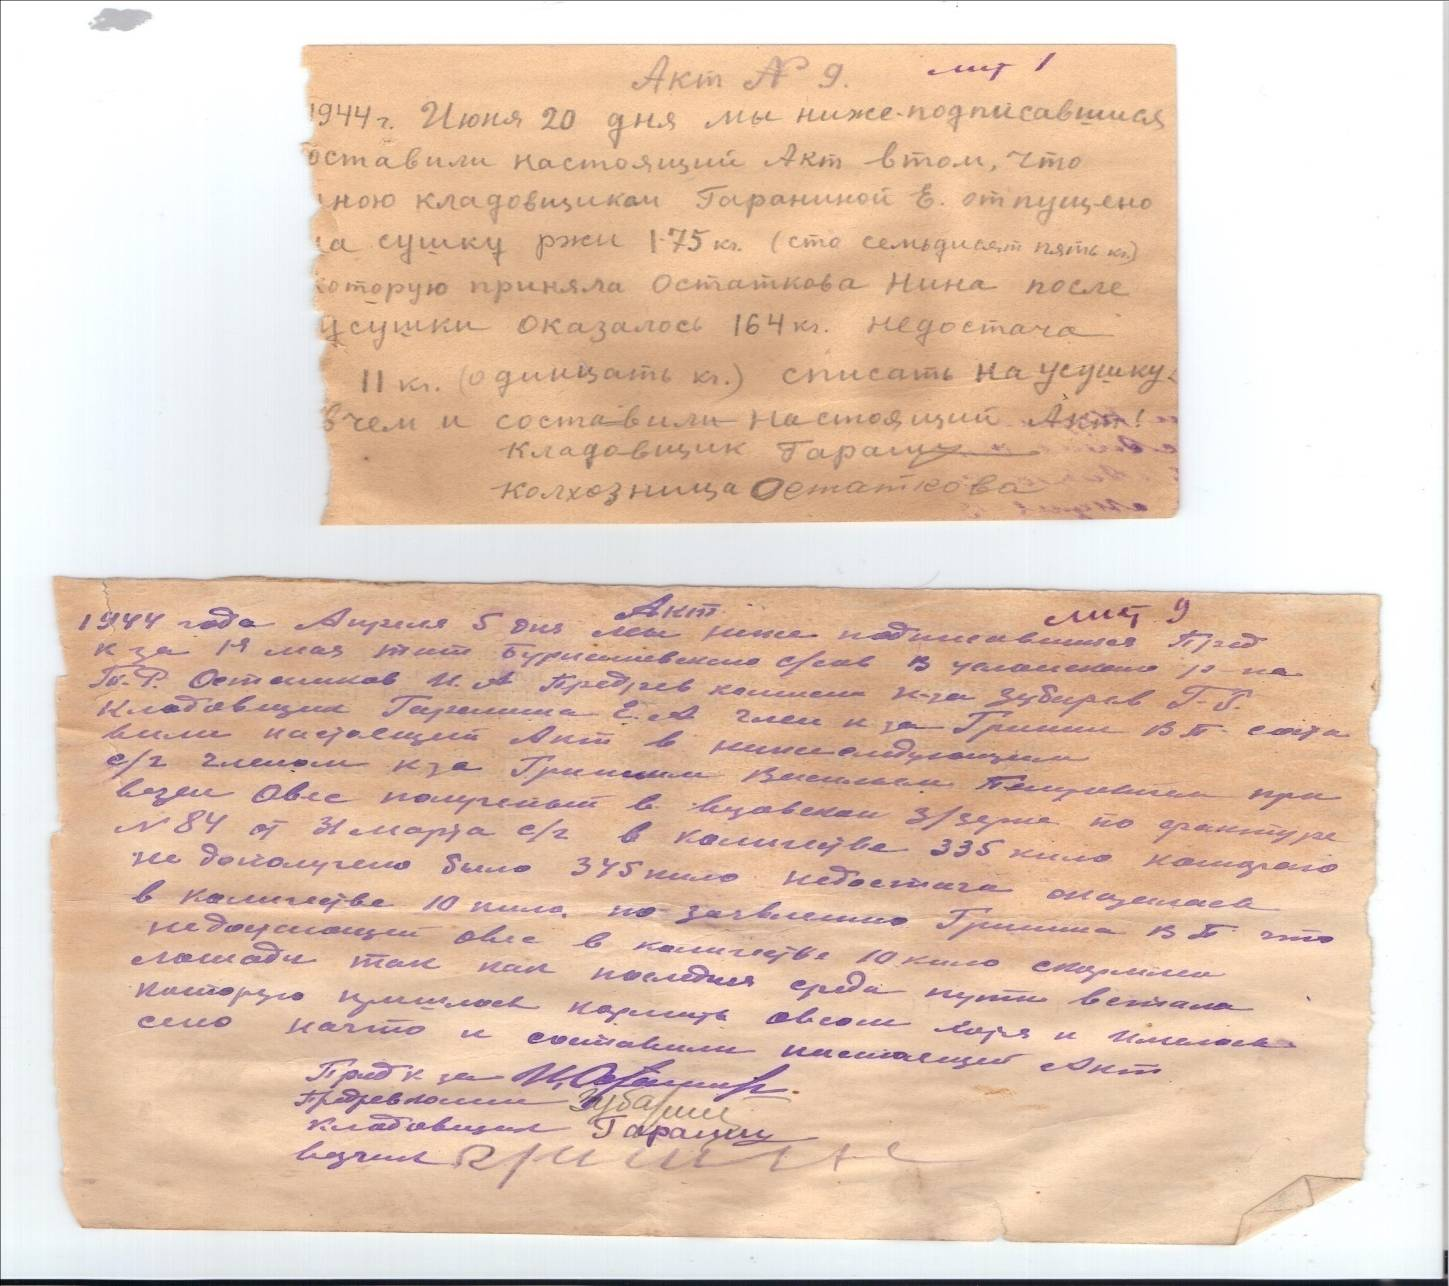 Акт № 9. лит 1
1944 г. Июня 20 дня мы ниже-подписавшися
оставили настоящий Акт втом, что
мною кладовщиком Гараниной Е. отпущено
на сушку ржи 175 кг. (сто семьдисят пять кг.)
которую приняла Остаткова Нина после
усушки оказалось 164 кг. недостача
11 кг. (одинцать кг.) списать на усушку.
вчем и составили настоящий Акт!
Кладовщик Гаранин
Колхозница Остаткова
Акт лит 9
1944 года Апреля 5 дня мы ниже подписавшиеся Пред
к-за 1й мая В услонского р-на
Т.Р. Осташков И. А Предрев комисии к-за Зубарев Г-
Кладовщик Гаранина Е. А член к-за Гришин В П. соста
вили настоящий Акт в нижеследующим
с/г членом к-за Гришиным Васильем при
везен Овес полученый в по фактуре
№ 84 от 31 марта с/г в количестве 335 кило которого
не дополучено было 345 кило недостача оказалась
в количестве 10 кило. по заявлению Гришина В П что
недостающей овес в количестве 10 кило скормил
лошади так как последняя среда пути встала
которую пришлось кормить овсом хотя и имелось
сено начто и составили настоящей Акт
Пред к-за И. Осташков.
Предревкомии Зубарин
кладовщик Гаранин
возчик Гришин